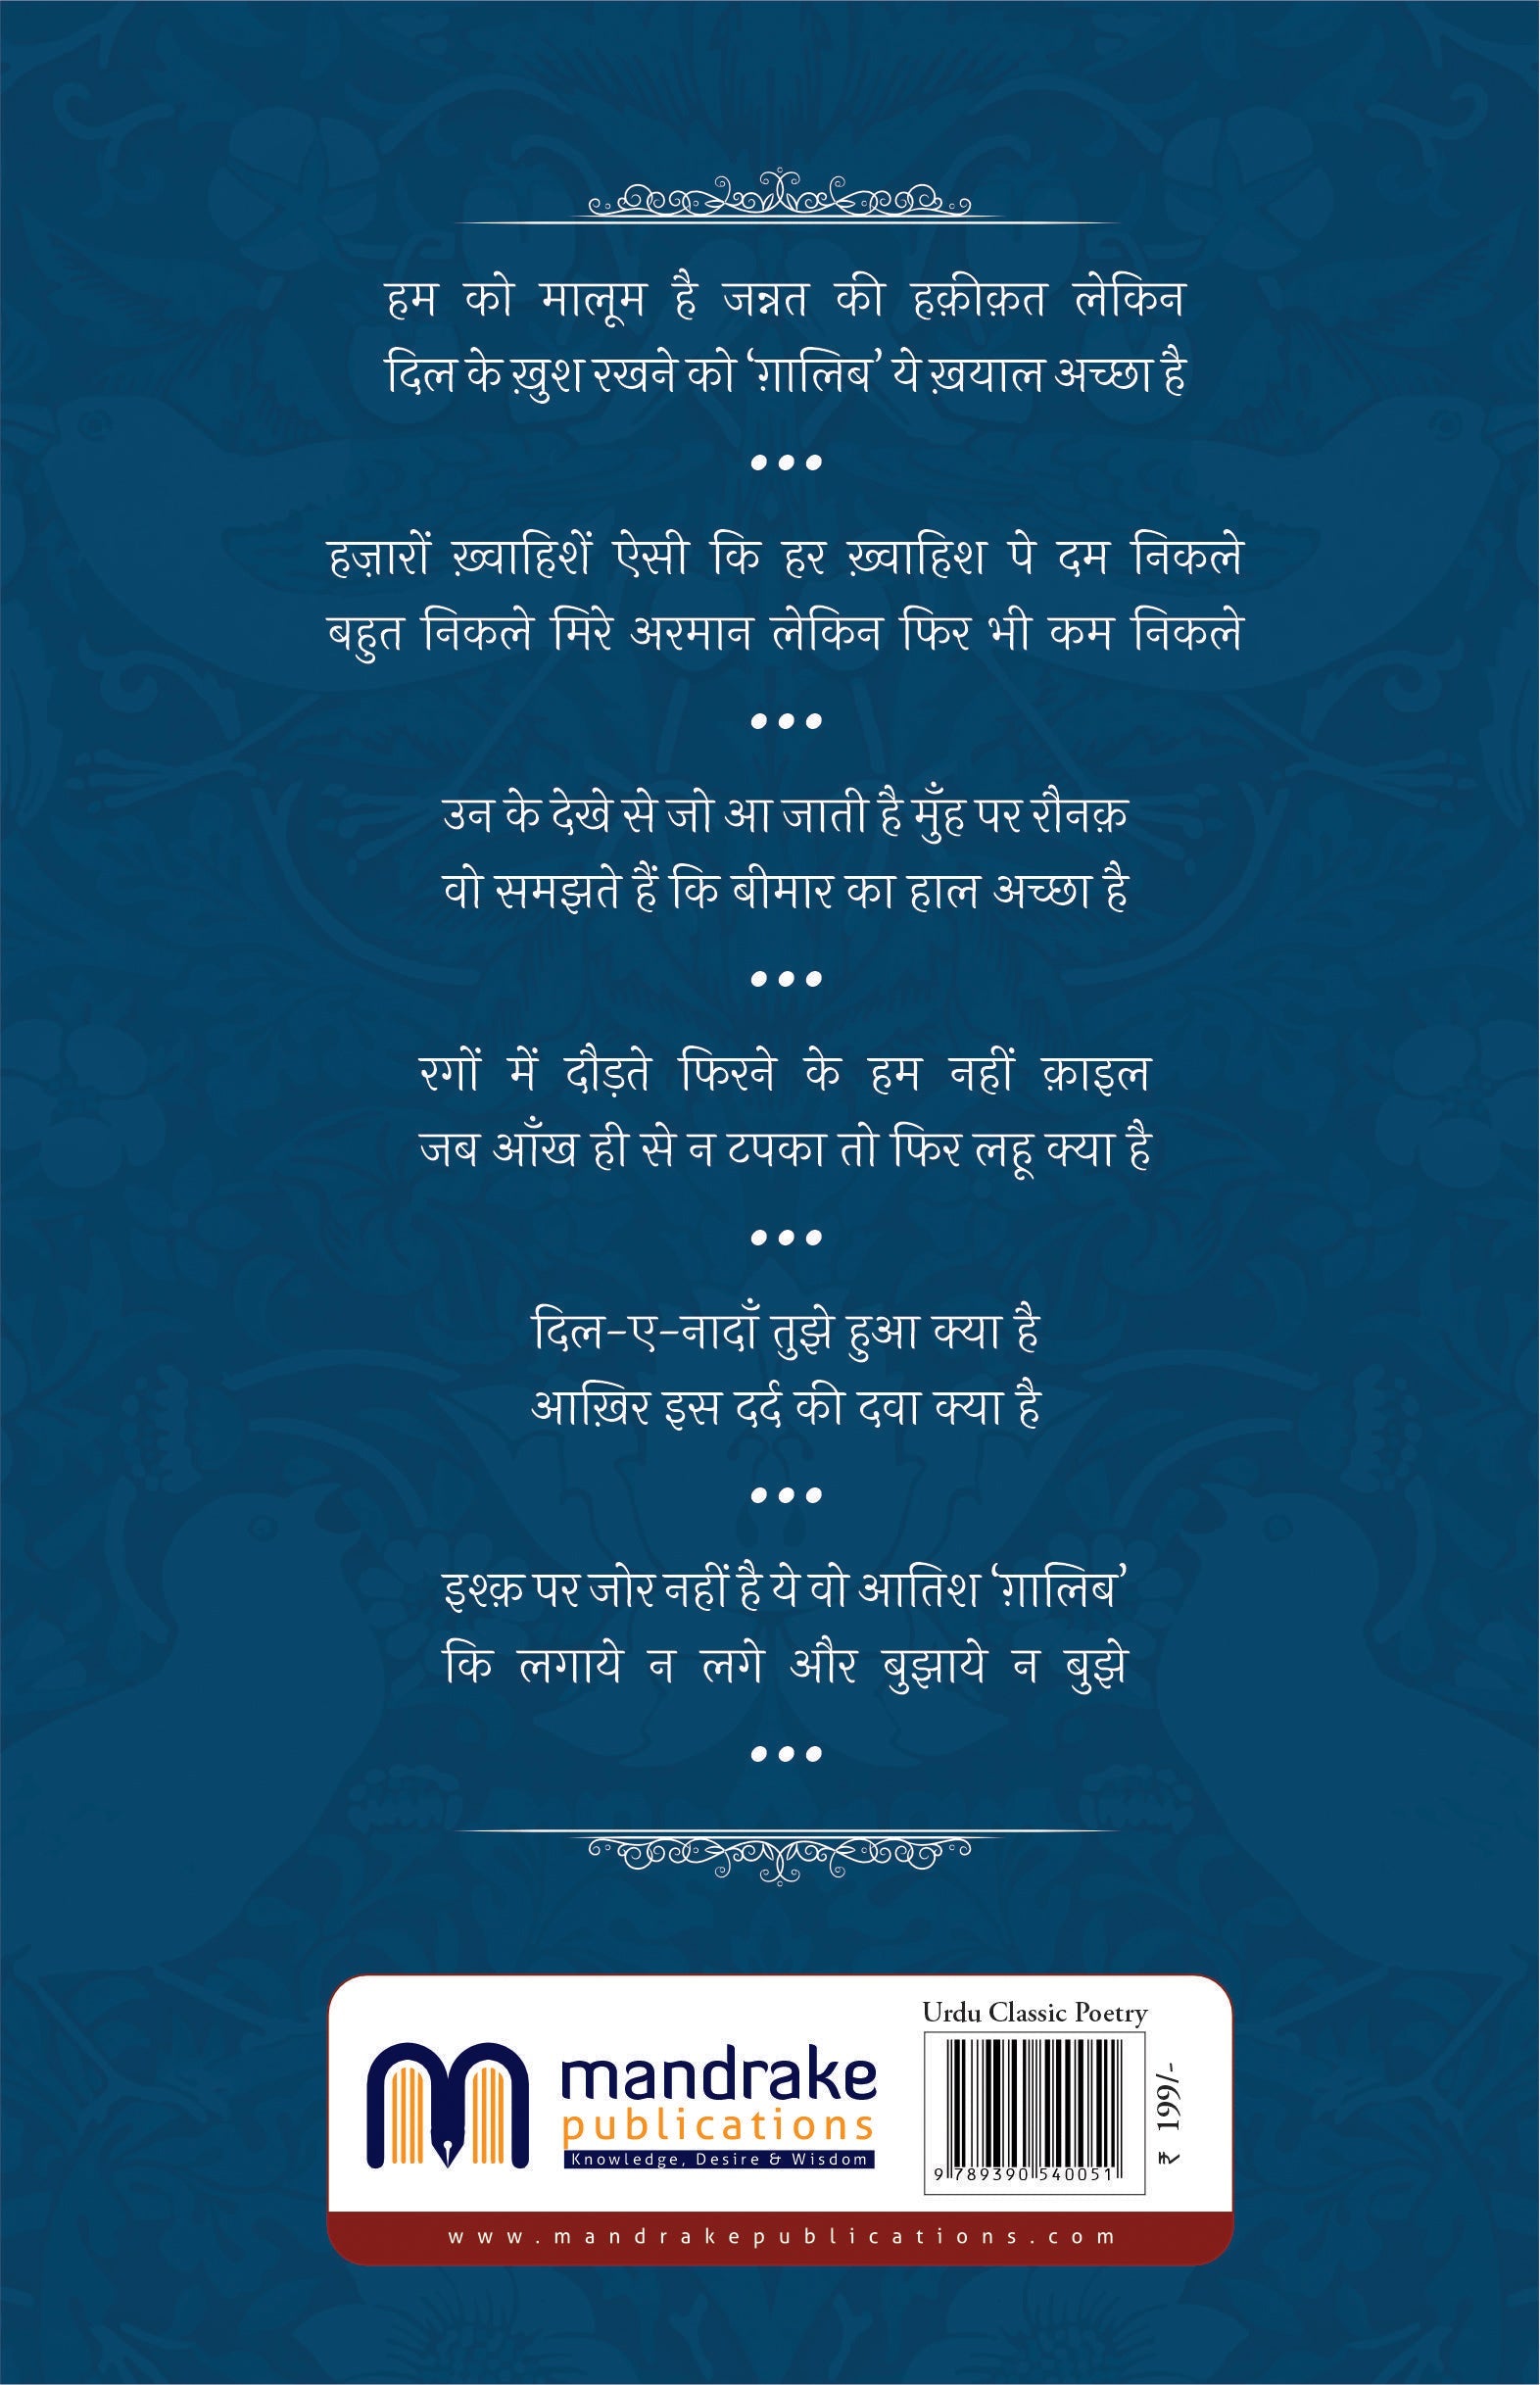 हम को मालूम है जन्नत की हक़ीक़त लेकिन
दिल के ख़ुश रखने को ‘ग़ालिब’ ये ख़याल अच्छा है
•••
हज़ारों ख़्वाहिशें ऐसी कि हर ख़्वाहिश पे दम निकले
बहुत निकले मिरे अरमान लेकिन फिर भी कम निकले
•••
उन के देखे से जो आ जाती है मुँह पर रौनक़
वो समझते हैं कि बीमार का हाल अच्छा है
•••
रगों में दौड़ते फिरने के हम नहीं क़ाइल
जब आँख ही से न टपका तो फिर लहू क्या है
•••
दिल-ए-नादाँ तुझे हुआ क्या है
आख़िर इस दर्द की दवा क्या है
•••
इश्क़ पर जोर नहीं है ये वो आतिश ‘ग़ालिब’
कि लगाये न लगे और बुझाये न बुझे
•••
mandrake
publications
Knowledge, Desire & Wisdom
Urdu Classic Poetry
9 789390 540051
₹ 199/-
www.mandrakepublications.com